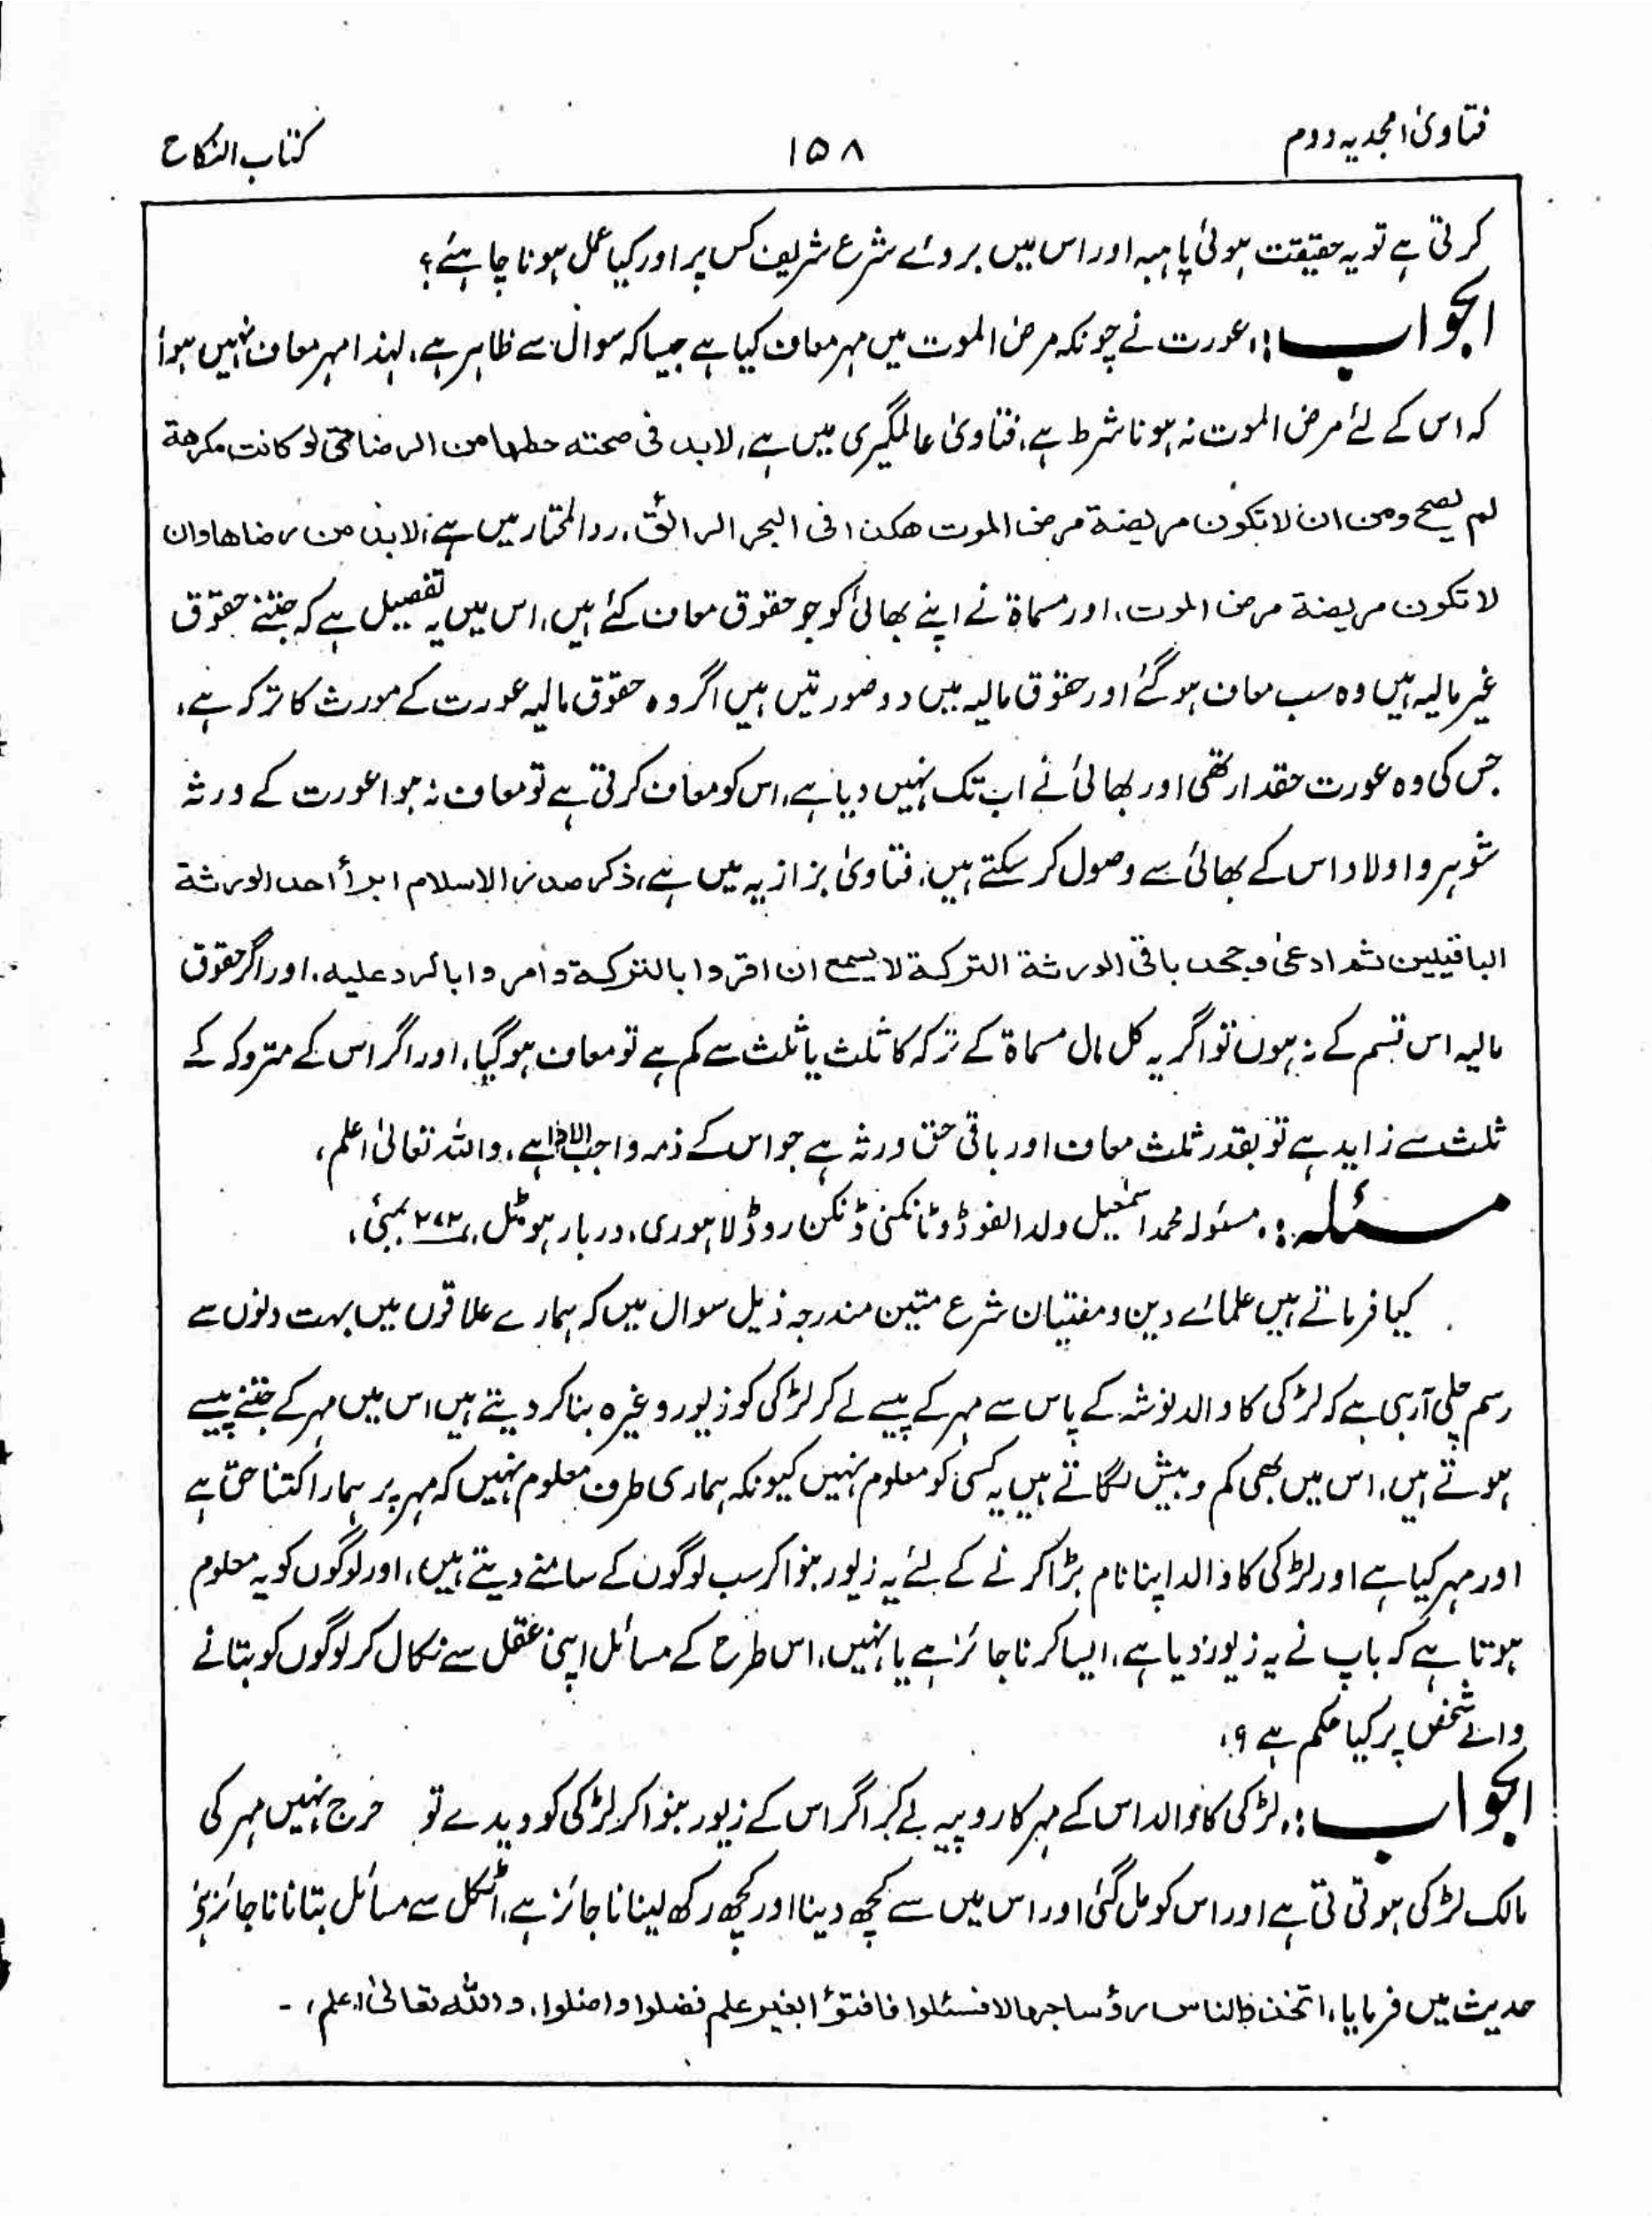 فتاویٰ امجدیہ دوم
۱۵۸
کتاب النکاح
کرتی ہے تو یہ حقیقت ہوئی یا ہبہ اور اس میں بروئے شرع شریف کس پر اور کیا عمل ہونا چاہئے؟
الجواب: عورت نے چونکہ مرض الموت میں مہر معاف کیا ہے جیسا کہ سوال سے ظاہر ہے، لہٰذا مہر معاف نہیں ہوا
کہ اس کے لئے مرض الموت نہ ہونا شرط ہے، فتاویٰ عالمگیری میں ہے، لابد فی صحتہ حطہا من الرضا حتی لو کانت مکرھة
لم یصح ومن ان لا تکون مریضة مرض الموت ھکذا فی البحر الرائق، ردالمحتار میں ہے: لابد من رضاھا وان
لا تکون مریضة مرض الموت، اور مسماۃ نے اپنے بھائی کو جو حقوق معاف کئے ہیں، اس میں یہ تفصیل ہے کہ جتنے حقوق
غیر مالیہ ہیں وہ سب معاف ہو گئے اور حقوق مالیہ میں دو صورتیں ہیں اگر وہ حقوق مالیہ عورت کے مورث کا ترکہ ہے،
جس کی وہ عورت حقدار تھی اور بھائی نے اب تک نہیں دیا ہے، اس کو معاف کرتی ہے تو معاف نہ ہوا عورت کے ورثہ
شوہر و اولاد اس کے بھائی سے وصول کر سکتے ہیں، فتاویٰ بزازیہ میں ہے، ذکر صدر الاسلام ابرأ احد الورثة
الباقیین ثم ادعیٰ وجحد باقی الورثة الترکة لا یسمع ان اقروا بالترکة وامروا بالرد علیہ، اور اگر حقوق
مالیہ اس قسم کے نہ ہوں تو اگر یہ کل مال مسماۃ کے ترکہ کا ثلث یا ثلث سے کم ہے تو معاف ہو گیا، اور اگر اس کے متروکہ کے
ثلث سے زاید ہے تو بقدر ثلث معاف اور باقی حق ورثہ ہے جو اس کے ذمہ واجب الادا ہے، واللہ تعالیٰ اعلم،
مسئلہ: مسئولہ محمد اسمٰعیل ولد ڈنکن روڈ لاہوری، دربار ہوٹل، بمبئی،
کیا فرماتے ہیں علمائے دین و مفتیان شرع متین مندرجہ ذیل سوال میں کہ ہمارے علاقوں میں بہت دنوں سے
رسم چلی آرہی ہے کہ لڑکی کا والد نوشہ کے پاس سے مہر کے پیسے لے کر لڑکی کو زیور وغیرہ بنا کر دیتے ہیں اس میں مہر کے جتنے پیسے
ہوتے ہیں، اس میں بھی کم و بیش لگاتے ہیں یہ کسی کو معلوم نہیں کیونکہ ہماری طرف معلوم نہیں کہ مہر پر ہمارا کتنا حق ہے
اور مہر کیا ہے اور لڑکی کا والد اپنا نام بڑا کرنے کے لئے یہ زیور بنوا کر سب لوگوں کے سامنے دیتے ہیں، اور لوگوں کو یہ معلوم
ہوتا ہے کہ باپ نے یہ زیور دیا ہے، ایسا کرنا جائز ہے یا نہیں، اس طرح کے مسائل اپنی عقل سے نکال کر لوگوں کو بتانے
والے شخص پر کیا حکم ہے؟
الجواب: لڑکی کا والد اس کے مہر کا روپیہ لے کر اگر اس کے زیور بنوا کر لڑکی کو دیدے تو حرج نہیں مہر کی
مالک لڑکی ہوتی تی ہے اور اس کو مل گئی اور اس میں سے کچھ دینا اور کچھ رکھ لینا ناجائز ہے، اٹکل سے مسائل بتانا ناجائز ہے
حدیث میں فرمایا، اتخذ الناس رؤسا جہالا فسئلوا فافتوا بغیر علم فضلوا واضلوا، واللہ تعالیٰ اعلم، -